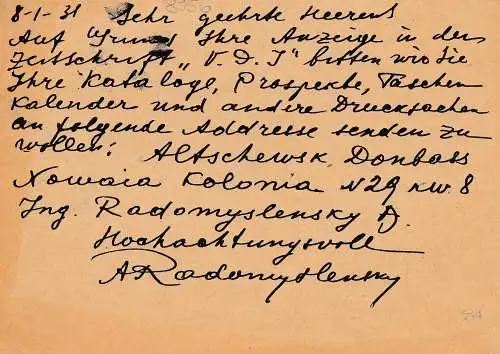 8-1-31 Sehr geehrte Heeren!
Auf Grund Ihre Anzeige in der
Zeitschrift „V. D. I" bitten wir Sie
Ihre Kataloge, Prospekte, Taschen
Kalender und andere Drucksachen
an folgende Addresse senden zu
wollen: Altschewsk, Donbass
Nowaia Kolonia N 29 kw. 8
Ing. Radomyslensky A.
Hochachtungsvoll
ARadomyslensky